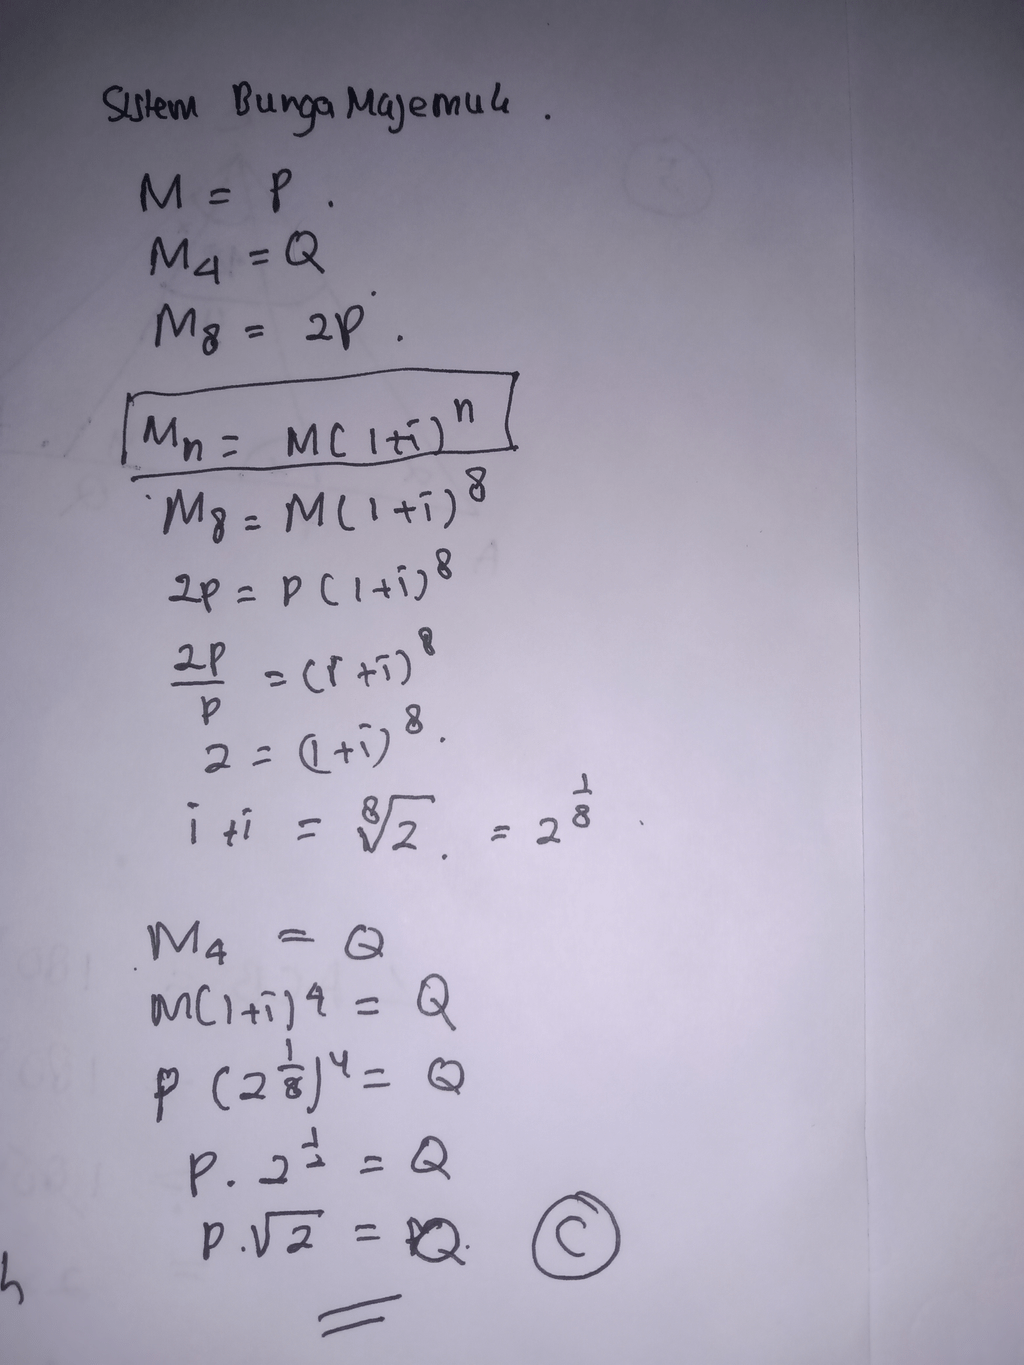 Sistem Bunga Majemuk.
M = P.
M₄ = Q
M₈ = 2P.
Mₙ = M(1+i)ⁿ
M₈ = M(1+i)⁸
2P = P(1+i)⁸
2P/P = (1+i)⁸
2 = (1+i)⁸.
1+i = ⁸√2. = 2^(1/8)
M₄ = Q
M(1+i)⁴ = Q
P (2^(1/8))⁴ = Q
P. 2^(1/2) = Q
P.√2 = Q. C